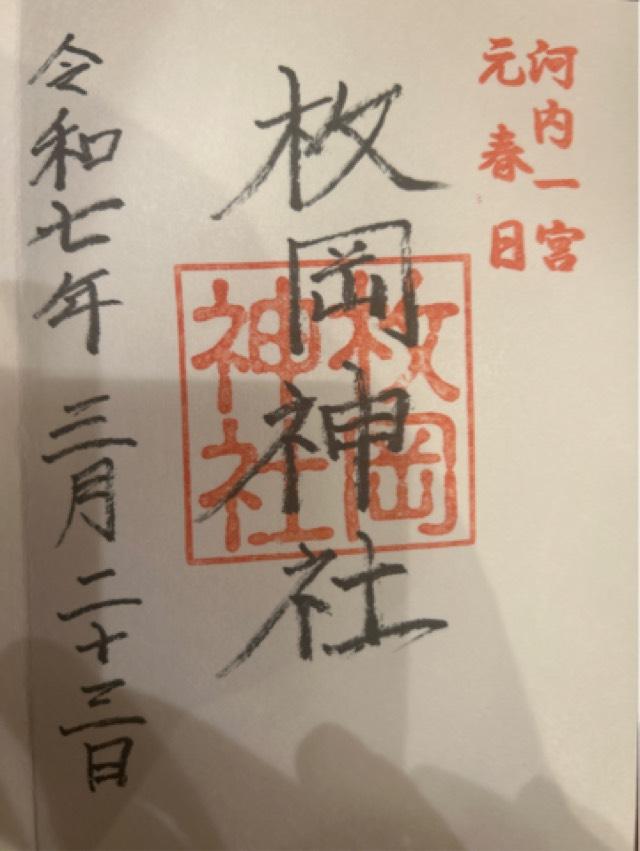 河内一宮
元春日
枚岡神社
枚岡
神社
令和七年三月二十三日